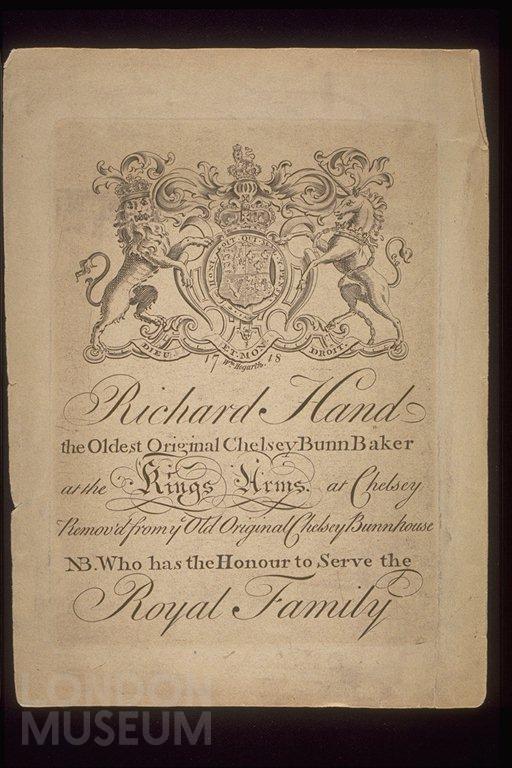 HONI SOIT QUI MAL Y PENSE
DIEU ET MON DROIT
17 Wm Hogarth. 18
Richard Hand
the Oldest Original Chelsey Bunn Baker
at the Kings Arms. at Chelsey
Remov'd from ye Old Original Chelsey Bunnhouse
NB. Who has the Honour to Serve the
Royal Family
LONDON
MUSEUM